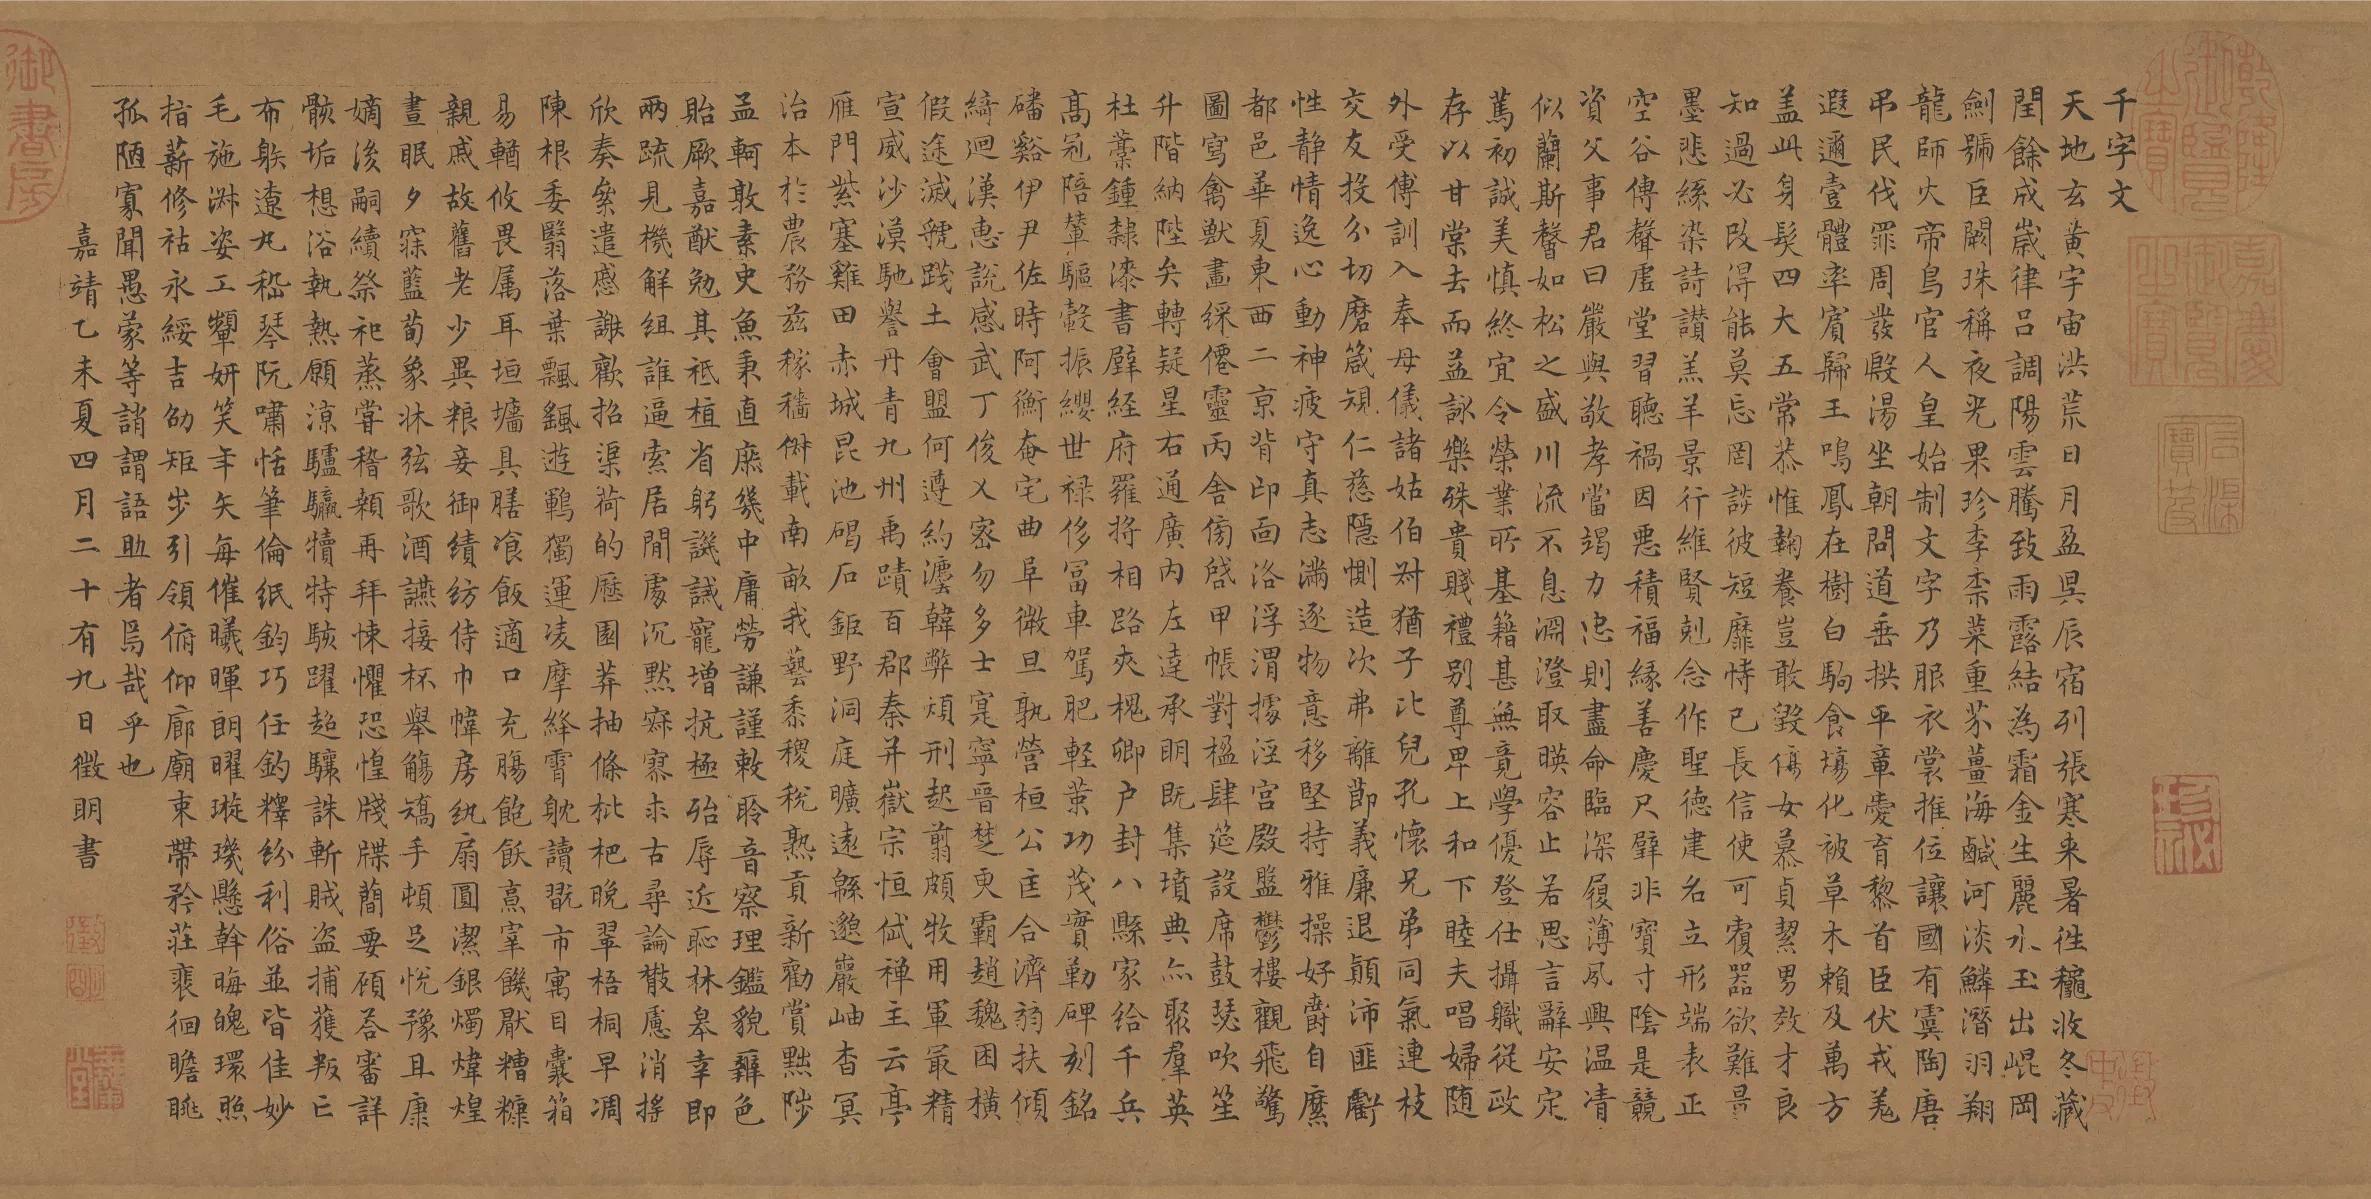 千字文
天地玄黃宇宙洪荒日月盈昃辰宿列張寒来暑徃穐收冬藏
閏餘成歲律吕調陽雲騰致雨露結為霜金生麗水玉出崐岡
劍號巨闕珠稱夜光果珍李柰菜重芥薑海鹹河淡鱗潛羽翔
龍師火帝鳥官人皇始制文字乃服衣裳推位讓國有虞陶唐
弔民伐罪周發殷湯坐朝問道垂拱平章愛育黎首臣伏戎羌
遐邇壹體率賓歸王鳴鳳在樹白駒食場化被草木賴及萬方
盖此身髮四大五常恭惟鞠養豈敢毀傷女慕貞絜男效才良
知過必改得能莫忘罔談彼短靡恃己長信使可覆器欲難量
墨悲絲染詩讃羔羊景行維賢剋念作聖德建名立形端表正
空谷傳聲虛堂習聽禍因惡積福緣善慶尺璧非寶寸陰是競
資父事君曰嚴與敬孝當竭力忠則盡命臨深履薄夙興温凊
似蘭斯馨如松之盛川流不息淵澄取暎容止若思言辭安定
篤初誠美慎終宜令榮業所基籍甚無竟學優登仕攝職從政
存以甘棠去而益詠樂殊貴賤禮别尊卑上和下睦夫唱婦随
外受傅訓入奉母儀諸姑伯叔猶子比兒孔懷兄弟同氣連枝
交友投分切磨箴規仁慈隱惻造次弗離節義廉退顛沛匪虧
性静情逸心動神疲守真志滿逐物意移堅持雅操好爵自縻
都邑華夏東西二京背邙面洛浮渭據涇宮殿盤鬱樓觀飛驚
圖寫禽獸畫綵僊靈丙舍傍啓甲帳對楹肆筵設席鼓瑟吹笙
升階納陛弁轉疑星右通廣内左達承明既集墳典亦聚羣英
杜藁鍾隸漆書壁經府羅將相路夾槐卿户封八縣家給千兵
髙冠陪輦驅轂振纓世禄侈冨車駕肥軽策功茂實勒碑刻銘
磻谿伊尹佐時阿衡奄宅曲阜微旦孰營桓公匡合濟弱扶傾
綺迴漢惠說感武丁俊乂密勿多士寔寧晉楚更霸趙魏困橫
假途滅虢踐土會盟何遵約灋韓弊煩刑起翦頗牧用軍最精
宣威沙漠馳譽丹青九州禹蹟百郡秦并嶽宗恒岱禅主云亭
雁門紫塞雞田赤城昆池碣石鉅野洞庭曠遠緜邈巖岫杳冥
治本於農務兹稼穡俶載南畝我藝黍稷稅熟貢新勸賞黜陟
孟軻敦素史魚秉直庶幾中庸勞謙謹敕聆音察理鑑貌辨色
貽厥嘉猷勉其祗植省躬譏誡寵增抗極殆辱近恥林皋幸即
兩疏見機解組誰逼索居閒處沉默寂寥求古尋論散慮消揺
欣奏累遣慼謝歡招渠荷的歷園莽抽條枇杷晚翠梧桐早凋
陳根委翳落葉飄颻遊鵾獨運凌摩絳霄耽讀翫市寓目囊箱
易輶攸畏属耳垣墻具膳飡飯適口充腸飽飫烹宰饑厭糟糠
親戚故舊老少異粮妾御績紡侍巾帷房紈扇圓潔銀燭煒煌
晝眠夕寐藍荀象牀弦歌酒讌接杯舉觴矯手頓足悅豫且康
嫡後嗣續祭祀蒸甞稽顙再拜悚懼恐惶牋牒簡要顧荅審詳
骸垢想浴執熱願涼驢驘犢特駭躍超驤誅斬賊盜捕獲叛亡
布躲遼丸嵇琴阮嘯恬筆倫紙鈞巧任釣釋紛利俗並皆佳妙
毛施淑姿工顰妍笑年矢每催曦暉朗曜璇璣懸斡晦魄環照
指薪修祜永綏吉劭矩步引領俯仰廊廟束帶矜莊裴徊瞻眺
孤陋寡聞愚蒙等誚謂語助者焉哉乎也
嘉靖乙未夏四月二十有九日徵明書
乾隆御覽之寶
嘉慶御覽之寶
石渠寶笈
御書房
徵明